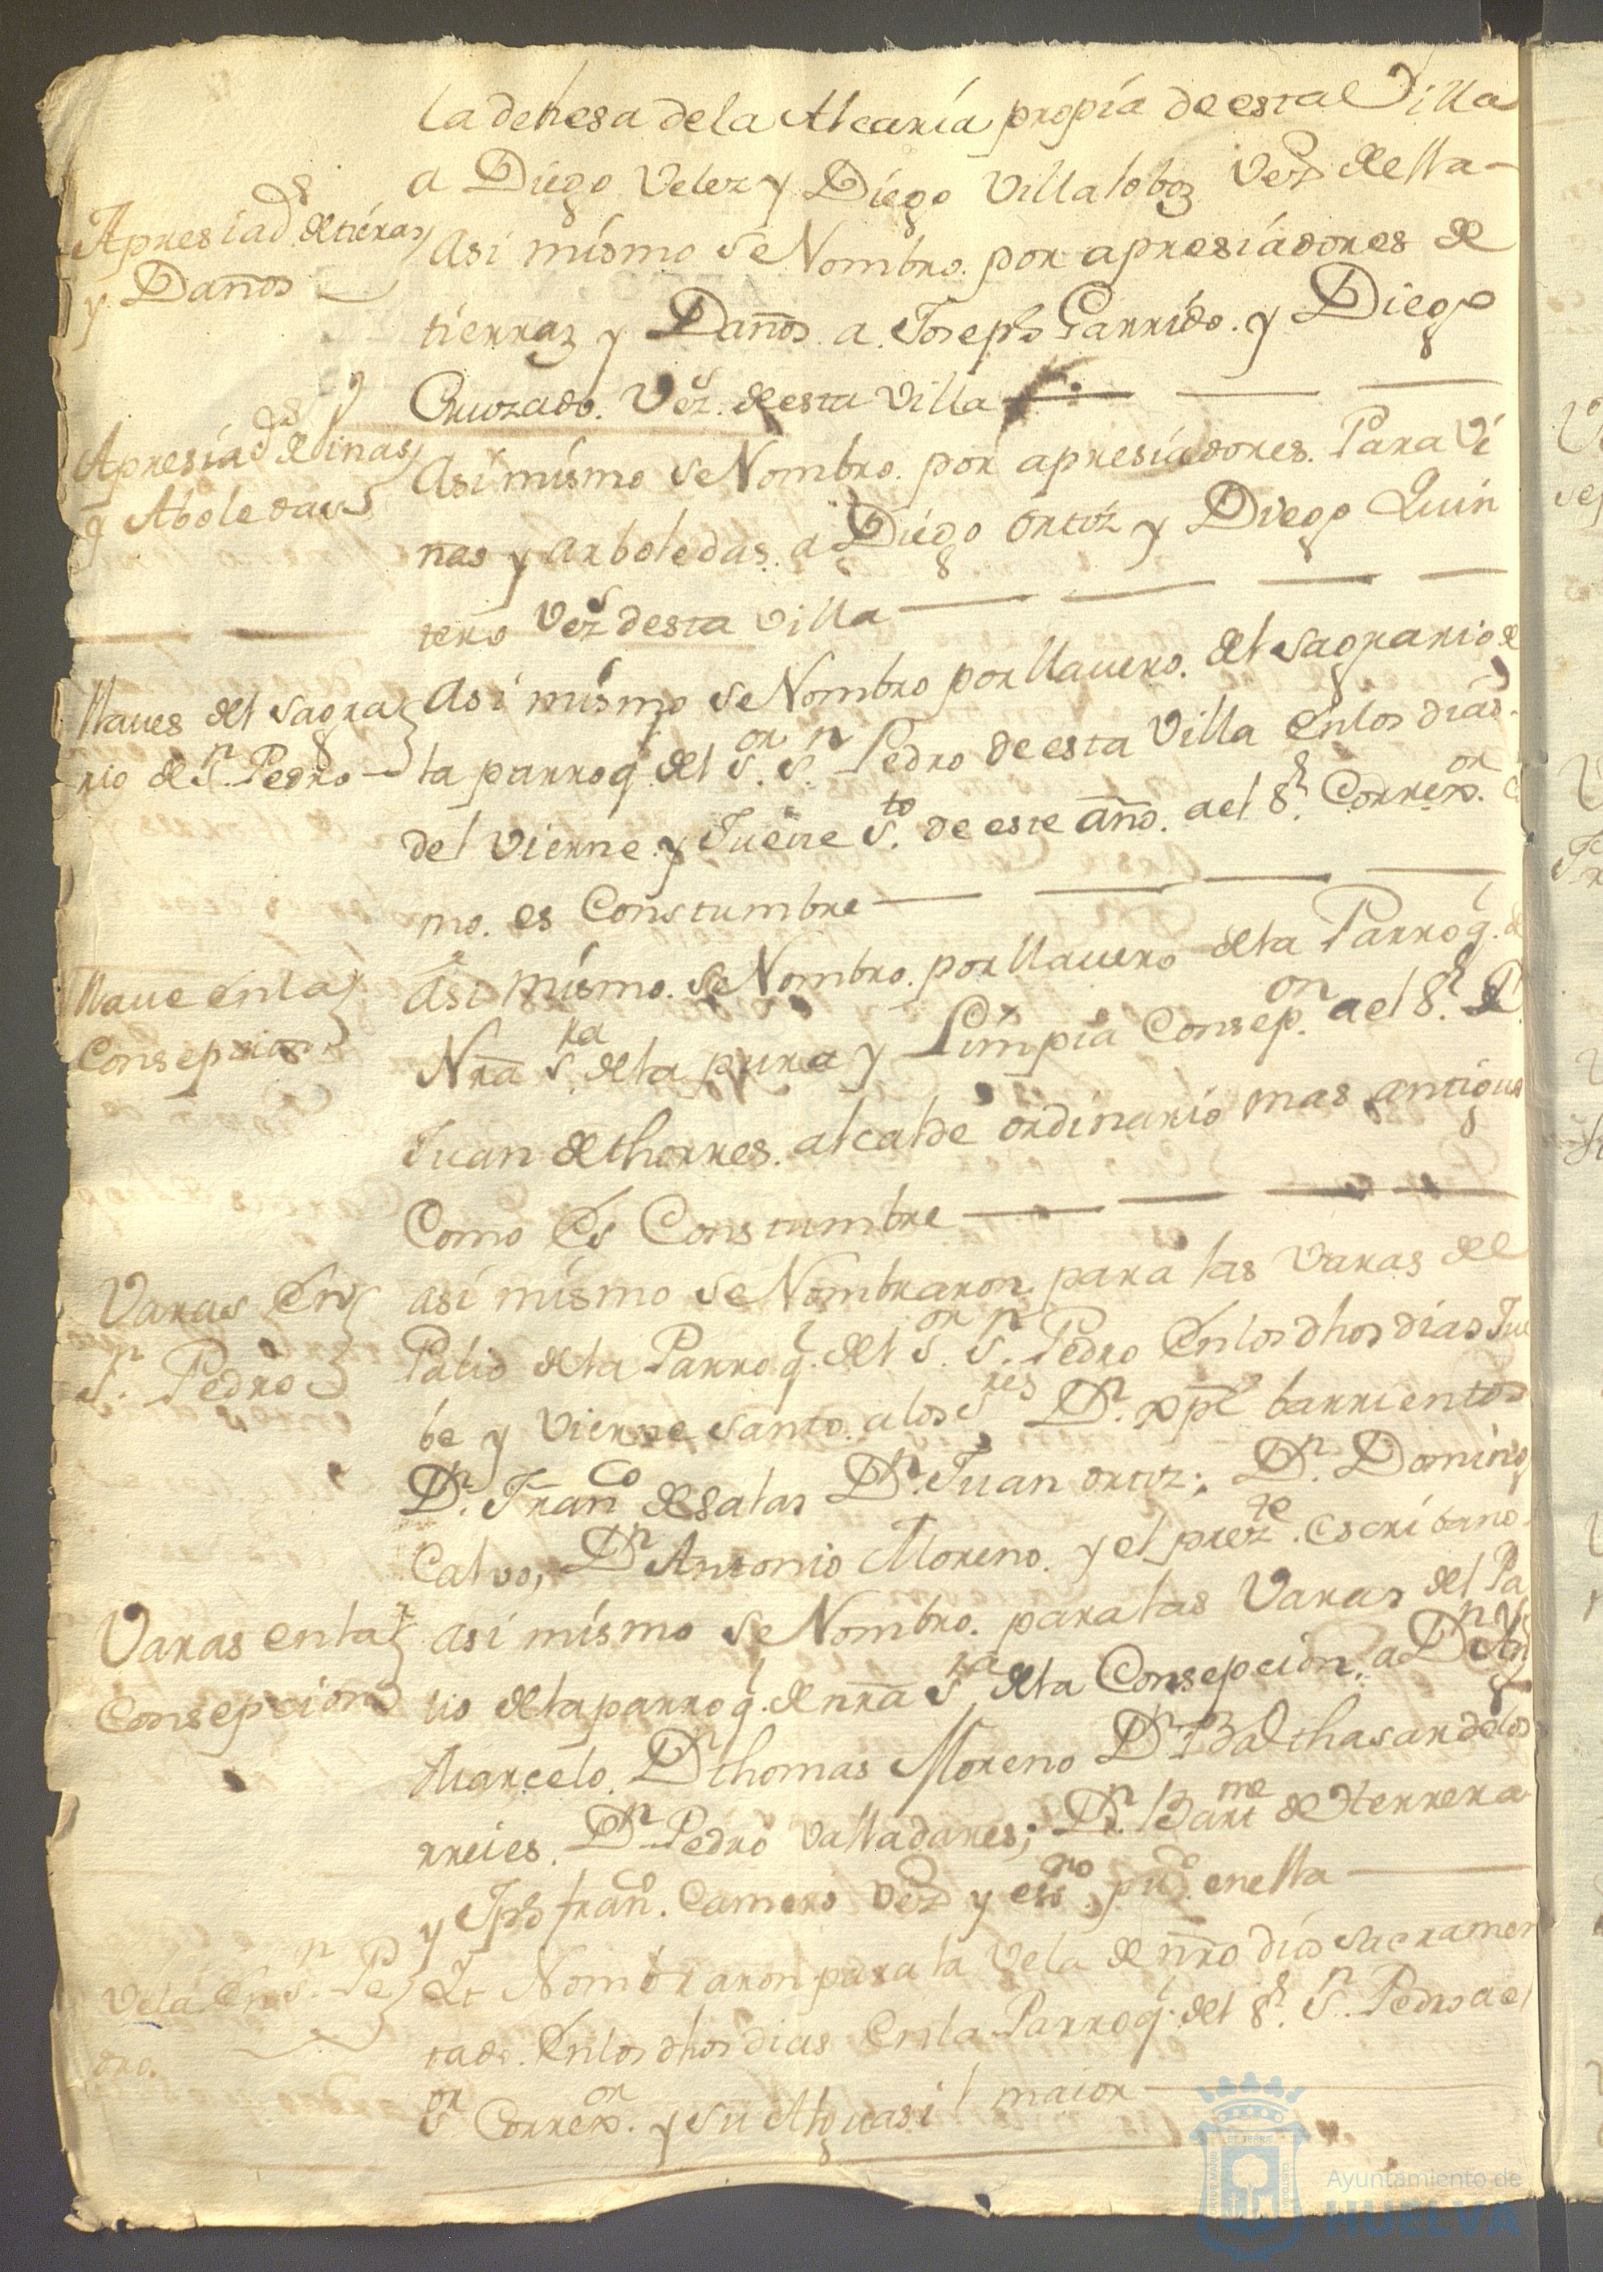 la dehesa de la Alcaria propia de esta Villa
a Diego Velez y Diego Villaloboz Vez.s della
Apresiad.s de tieras
y Daños
Asi mismo se Nombro. por apresiadores de
tierraz y Daños a Joseph Garrido. y Diego
Cruzado. Vez.s de esta Villa
Apresiad.s de Vinas
y Aboledas
Asi mismo se Nombro. por apresiadores. Para Vi
nas y arboledas. a Diego ortiz y Diego Quin
tero Vez.s desta Villa
llaues del sagra
rio de S.n Pedro
Asi mismo se Nombro por llauero. del sagrario de
la parroq.l del S.or S.n Pedro de esta Villa en los dias
del Vierne y Jueve S.to de este año. a el S.r Correx.or co
mo. es Constumbre
llaue en la
Consepcion
Asi mismo. se Nombro. por llauero de la Parroq.l de
Nra S.ra de la pura y Limpia Consep.on a el S.r D.
Juan de thorres. alcalde ordinario mas antiguo
Como Es Constumbre
Varas En
S.n Pedro
asi mismo se Nombraron para las Varas del
Palio de la Parroq.l del S.or S.n Pedro En los dhos dias Jue
be y Vierne santo. a los S.res D.n Phpe barrientos
D.n Fran.co de salas D.n Juan ortiz; D.n Domingo
Calvo, D.n Antonio Moreno. y el prez.te escribano
Varas en la
Consepcion
asi mismo se Nombro. para las Varas del Pa
lio de la parroq.l de nra S.ra de la Consepcion, a D.n
Marcelo. D. thomas Moreno D.n Balthasar de los
rreies. D.n Pedro Valladares; D.n Bart.me de Herrera
y Jph fran.co Camero Vez.o y ess.no pu.co en ella
Vela en S.n Pe
dro.
It Nombraron para la Vela de nro dios sacramen
tado. En los dhos dias En la Parroq.l del S.r S.n Pedro a el
S.or Correx.or y su Alguasil maior
Ayuntamiento de
HUELVA